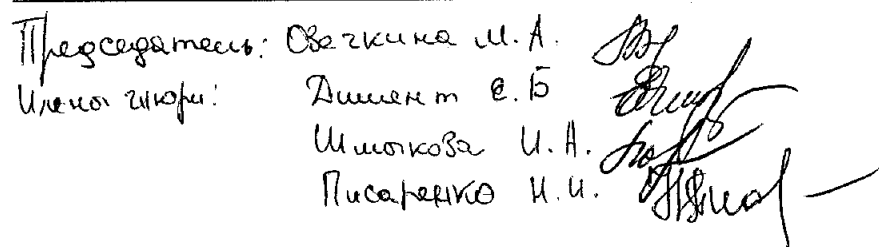 Председатель: Овечкина М.А.
Члены жюри: Димент Е.Б
Шмыкова И.А.
Писаренко Н.И.